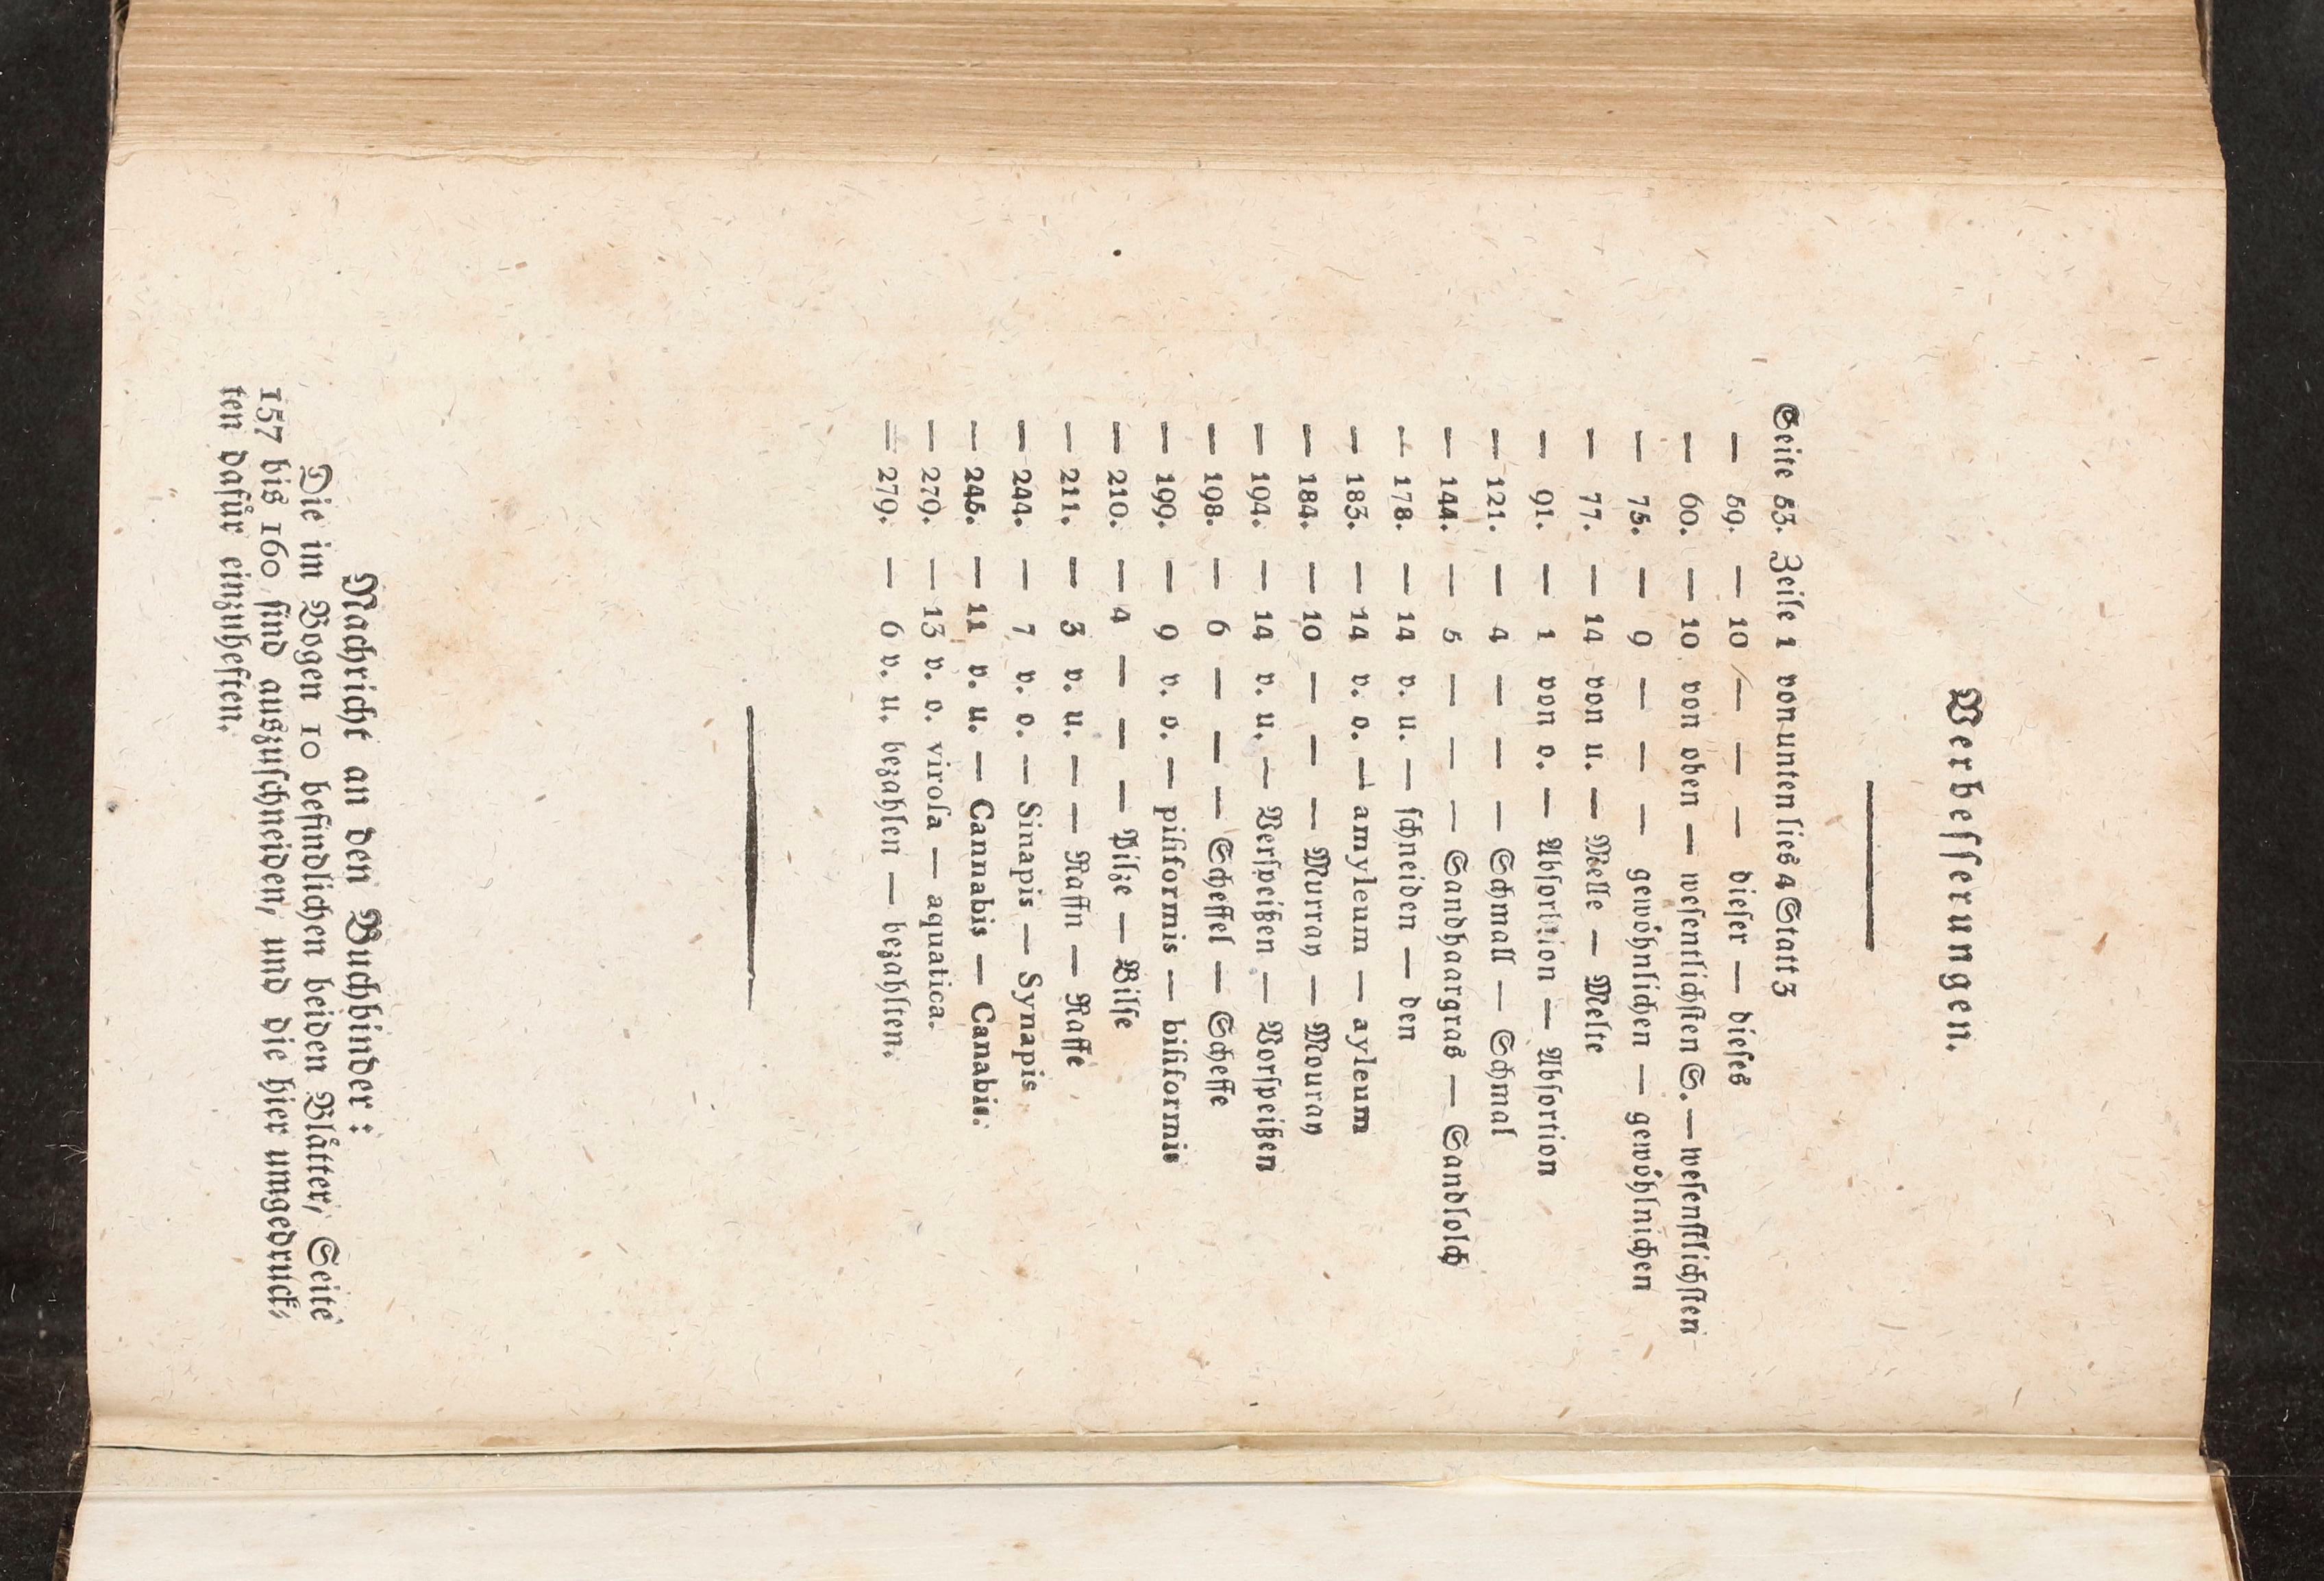 Verbesserungen.
Seite 53. Zeile 1 von unten lies 4 Statt 3
— 59. — 10 — — — dieser — dieses
— 60. — 10 von oben — wesentlichsten S. — wesenstlichsten
— 75. — 9 — — — gewöhnlichen — gewöhlnichen
— 77. — 14 von u. — Melle — Melte
— 91. — 1 von o. — Absorbtion — Absortion
— 121. — 4 — — — Schmall — Schmal
— 144. — 5 — — — Sandhaargras — Sandlolch
— 178. — 14 v. u. — schneiden — den
— 183. — 14 v. o. — amyleum — ayleum
— 184. — 10 — — — Murray — Mouray
— 194. — 14 v. u. — Verspeißen — Vorspeißen
— 198. — 6 — — — Scheffel — Scheffe
— 199. — 9 v. o. — pisiformis — bisiformis
— 210. — 4 — — — Pilze — Bilse
— 211. — 3 v. u. — — Raffn — Raffe
— 244. — 7 v. o. — Sinapis — Synapis
— 245. — 11 v. u. — Cannabis — Canabis.
— 279. — 13 v. o. virosa — aquatica.
— 279. — 6 v. u. bezahlen — bezahlten.
Nachricht an den Buchbinder:
Die im Bogen 10 befindlichen beiden Blätter, Seite
157 bis 160 sind auszuschneiden, und die hier umgedruck-
ten dafür einzuheften.